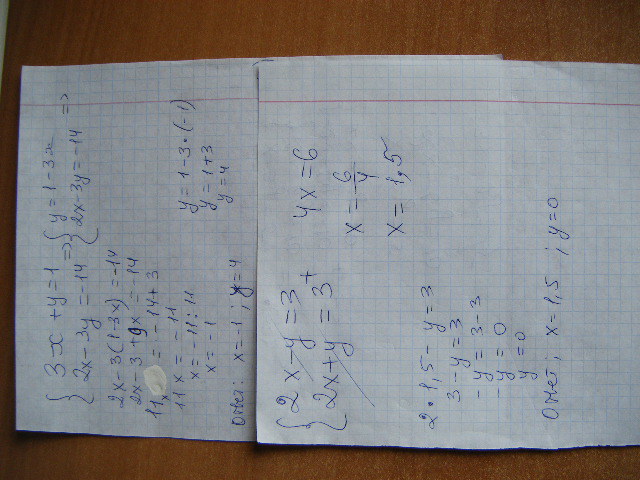 {3x+y=1 => {y=1-3x
{2x-3y=-14 {2x-3y=-14 =>
2x-3(1-3x)=-14
2x-3+9x=-14
11x = -14+3
11x = -11
x=-11:11
x=-1
y=1-3·(-1)
y=1+3
y=4
Ответ: x=-1; y=4
{2x-y=3
{2x+y=3 +
4x=6
x=6/4
x=1,5
2·1,5-y=3
3-y=3
-y=3-3
-y=0
y=0
Ответ; x=1,5 ; y=0